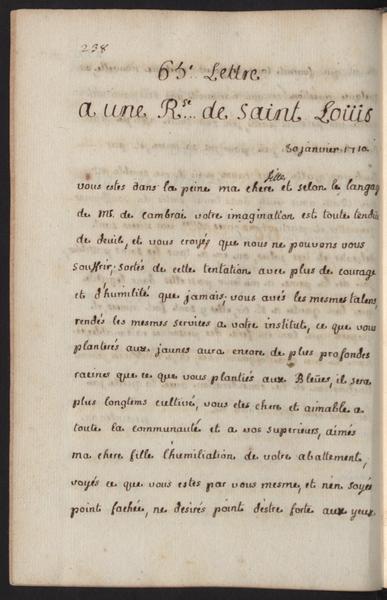 238
65e. Lettre
a une Rse. de saint Loüis
30 janvier 1710.
vous estes dans la peine ma chere fille et selon le langag
de Mr. de cambrai votre imagination est toute tendüe
de deuil, et vous croyés que nous ne pouvons vous
souffrir; sortés de cette tentation avec plus de courage
et d'humilité que jamais; vous avés les mesmes talens,
rendés les mesmes services a votre institut, ce que vous
planterés aux jaunes aura encore de plus profondes
racines que ce que vous plantiés aux Bleües, il sera
plus longtems cultivé, vous etes chere et aimable a
toute la communauté et a vos superieurs, aimés
ma chere fille l'humiliation de votre abattement,
voyés ce que vous estes par vous mesme, et n'en soyés
point fachée, ne desirés point destre forte aux yeux